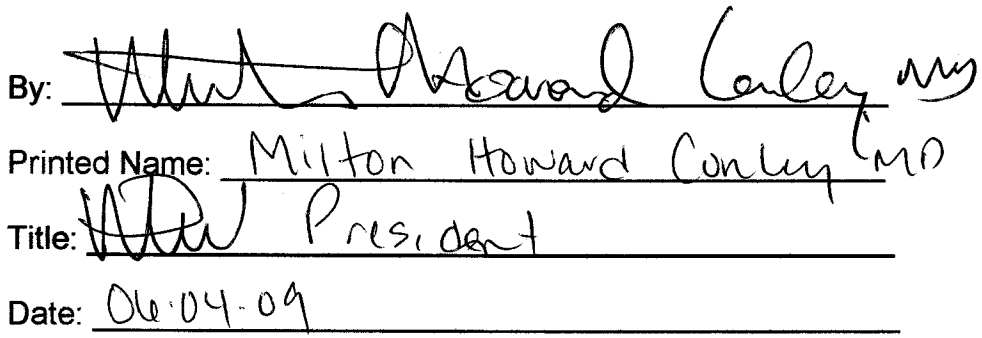 By: Milton Howard Conley MD
Printed Name: Milton Howard Conley MD
Title: President
Date: 06.04.09